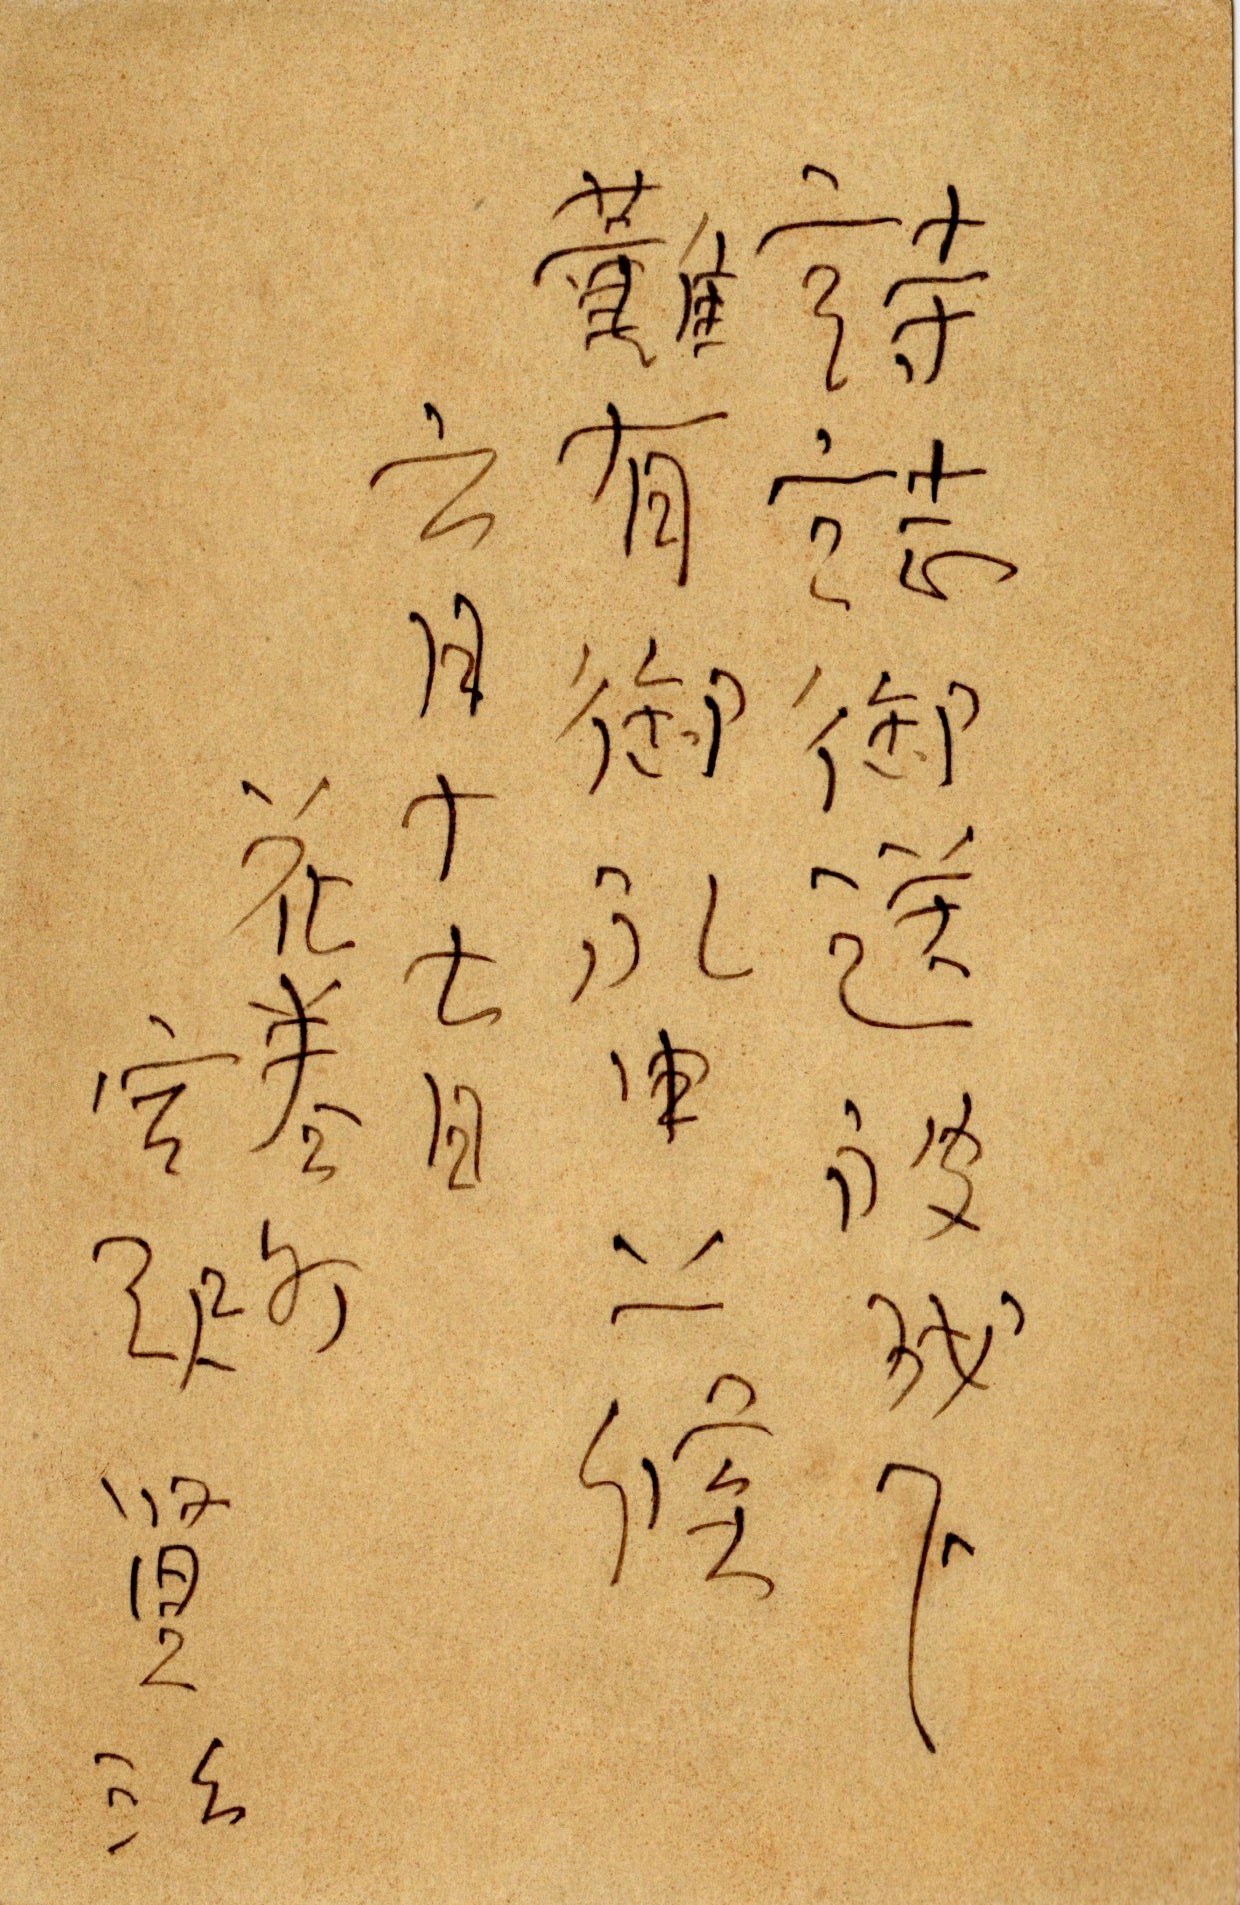 詩誌御送被成下
難有御礼申上候
六月十七日
花巻町
宮沢賢治